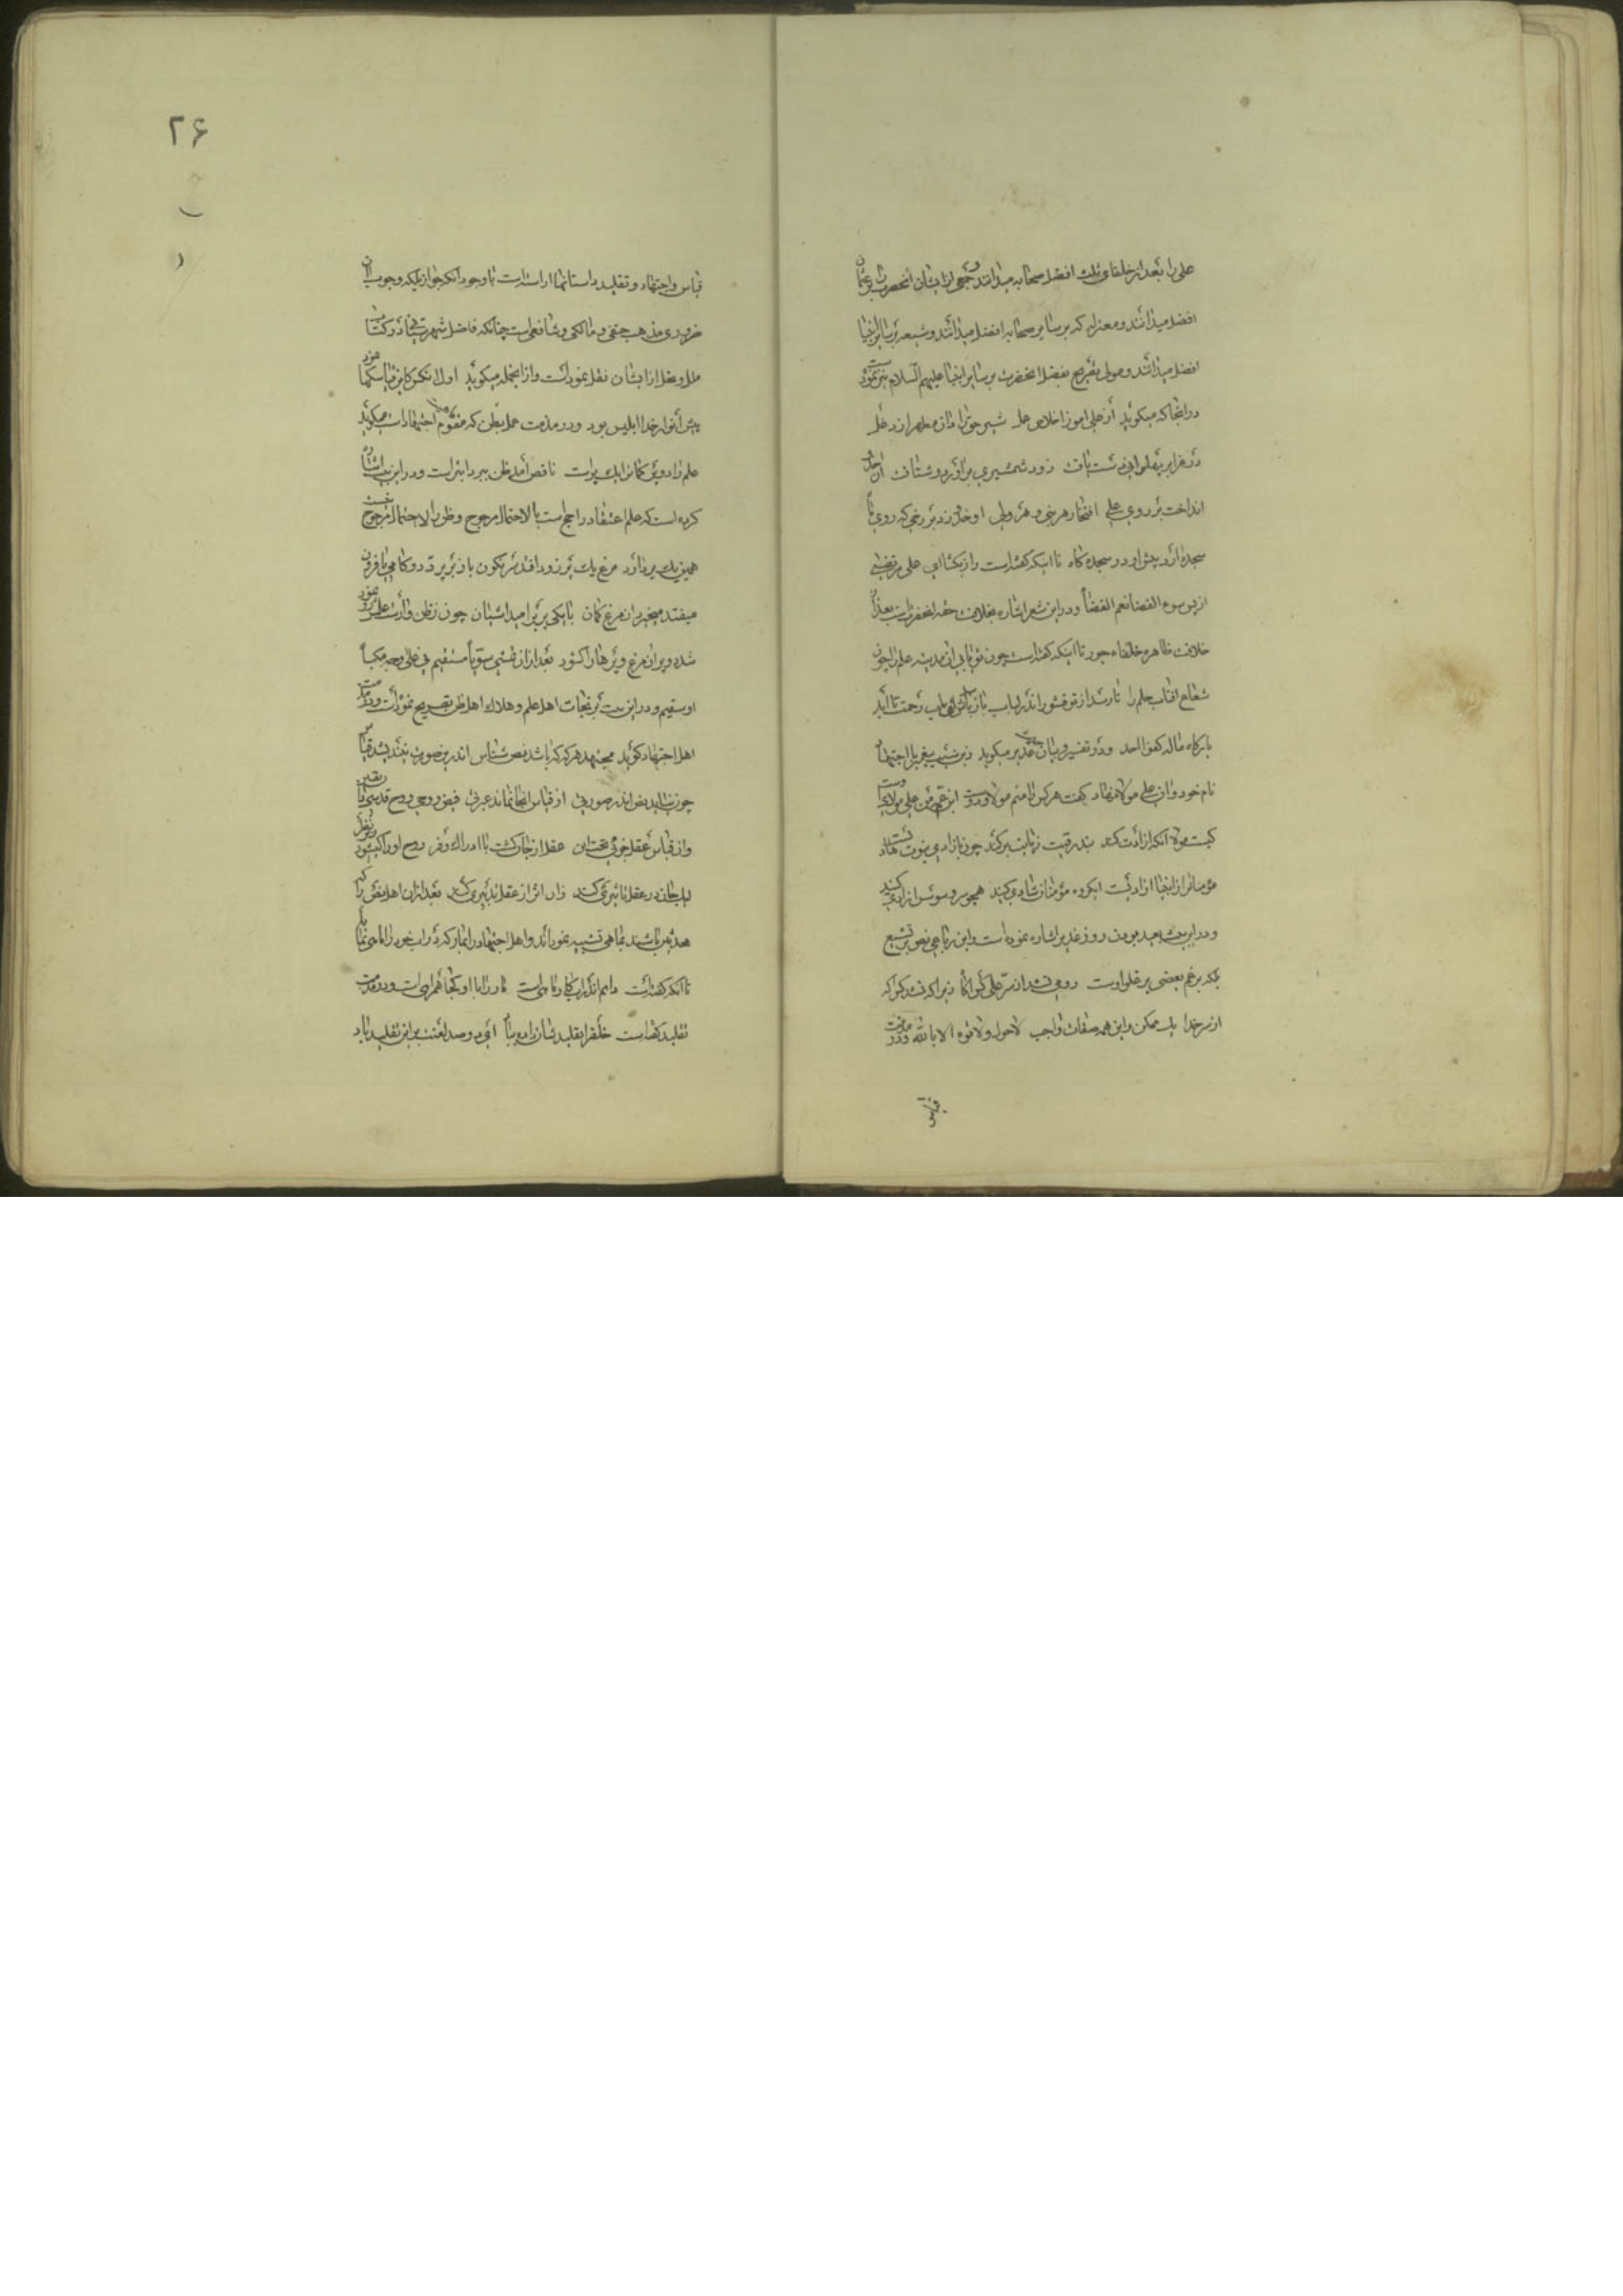 علی را بعد از خلفای ثلث افضل صحابه میدانند و جمعی از ایشان انحضرت را بر عثمان
افضل میدانند و معتزله که بر سایر صحابه افضل میدانند و شیعه بر سایر انبیا
افضل میدانند و مولوی بتفضیل انحضرت بر سایر انبیا علیهم السلام نیز نموده
در اینجا که میگوید از علی اموز اخلاص عمل شیر حق را دان مطهر از دغل
در غزا بر پهلوانی دست یافت زود شمشیری براورد و شتافت او خدو
انداخت بر روی علی افتخار هر نبی و هر ولی او خدو زد بر رخی که روی ماه
سجده ارد پیش او در سجده گاه تا اینکه گفته است راز بگشا ای علی مرتضی
ای پس سوء القضا نعم القضا و در این شعر اشاره بخلافت حقه انحضرتست بعد از
خلافت ظاهره خلفاء جور تا اینکه گفته است چون تو بابی ان مدینه علم را چون
شعاع افتاب حلم را تا رسد از تو قشور اندر لباب باز باش ای باب رحمت تا ابد
بارگاه ما له کفوا احد و در تفسیر و بیان حدیث غدیر میگوید زین سبب پیغمبر با اجتهاد
نام خود وان علی مولا نهاد گفت هر کس را منم مولا و دوست ابن عم من علی مولای اوست
کیست مولا انکه ازادت کند بند رقیت ز پایت بر کند چون بازادی نبوت هادیست
مؤمنانرا از انبیا ازادیست ای گروه مؤمنان شادی کنید همچو سرو و سوسن ازادی کنید
و در این بیت بعید بودن روز غدیر اشاره نموده است و این رباعی نص بر تشیع
بلکه بزعم بعضی بر غلو اوست رومی نشد از سر علی کس اگاه زیرا که نشد کس اگه
از سر خدا یک ممکن و این همه صفات واجب لا حول ولا قوه الا بالله و در مذمت
قیاس
۲۶
قیاس و اجتهاد و تقلید داستانها اراسته است با وجود انکه جواز بلکه وجوب ان
ضروری مذهب حنفی و مالکی و شافعی است چنانکه فاضل شهرستانی در کتاب
ملل و نحل از ایشان نقل نموده است و از انجمله میگوید اول ان کس کاین قیاسکها نمود
پیش انوار خدا ابلیس بود و در مذمت عمل بظن که مقوم معنی اجتهاد است میگوید
علم را دو پر گمان را یک پر است ناقص امد ظن بپرواز ابتر است و در این بیت اشاره
کرده است که علم اعتقاد راجح است بلا احتمال مرجوح و ظن با احتمال مرجوح
مرغ یک پر زود افتد سرنگون باز بر پرد دو گامی یا فزون
میفتد میخیزد ان مرغ گمان با یکی پر بر امید اشیان چون ز ظن وارست علمش رو نمود
شد دو پر ان مرغ و پرها را گشود بعد از ان یمشی سویا مستقیم نی علی وجهه مکبا
او سقیم و در این بیت بر نجات اهل علم و هلاک اهل ظن تصریح نموده است و در مذمت
اهل اجتهاد گوید مجتهد هر که که باشد نص شناس اندر ان صورت نیندیشد قیاس
چون نیابد نص اندر صورتی از قیاس انجا نماید عبرتی
و از قیاس عقل جزوی تحت این عقل از جان گشت با ادراک و فر روح او را کی شود زیر نظر
لیک جان در عقل تاثیری کند زان اثر ان عقل تدبیری کند بعد از ان اهل نص را که
باشند بماهی تشبیه نموده اند و اهل اجتهاد را بمار که در اب خود را ماهی نماید
تا انکه گفته است دایم اندر اب کار ماهی است مار را با او کجا همراهی است و در مذمت
تقلید گفته است خلق را تقلیدشان بر باد داد ای دو صد لعنت بر این تقلید باد